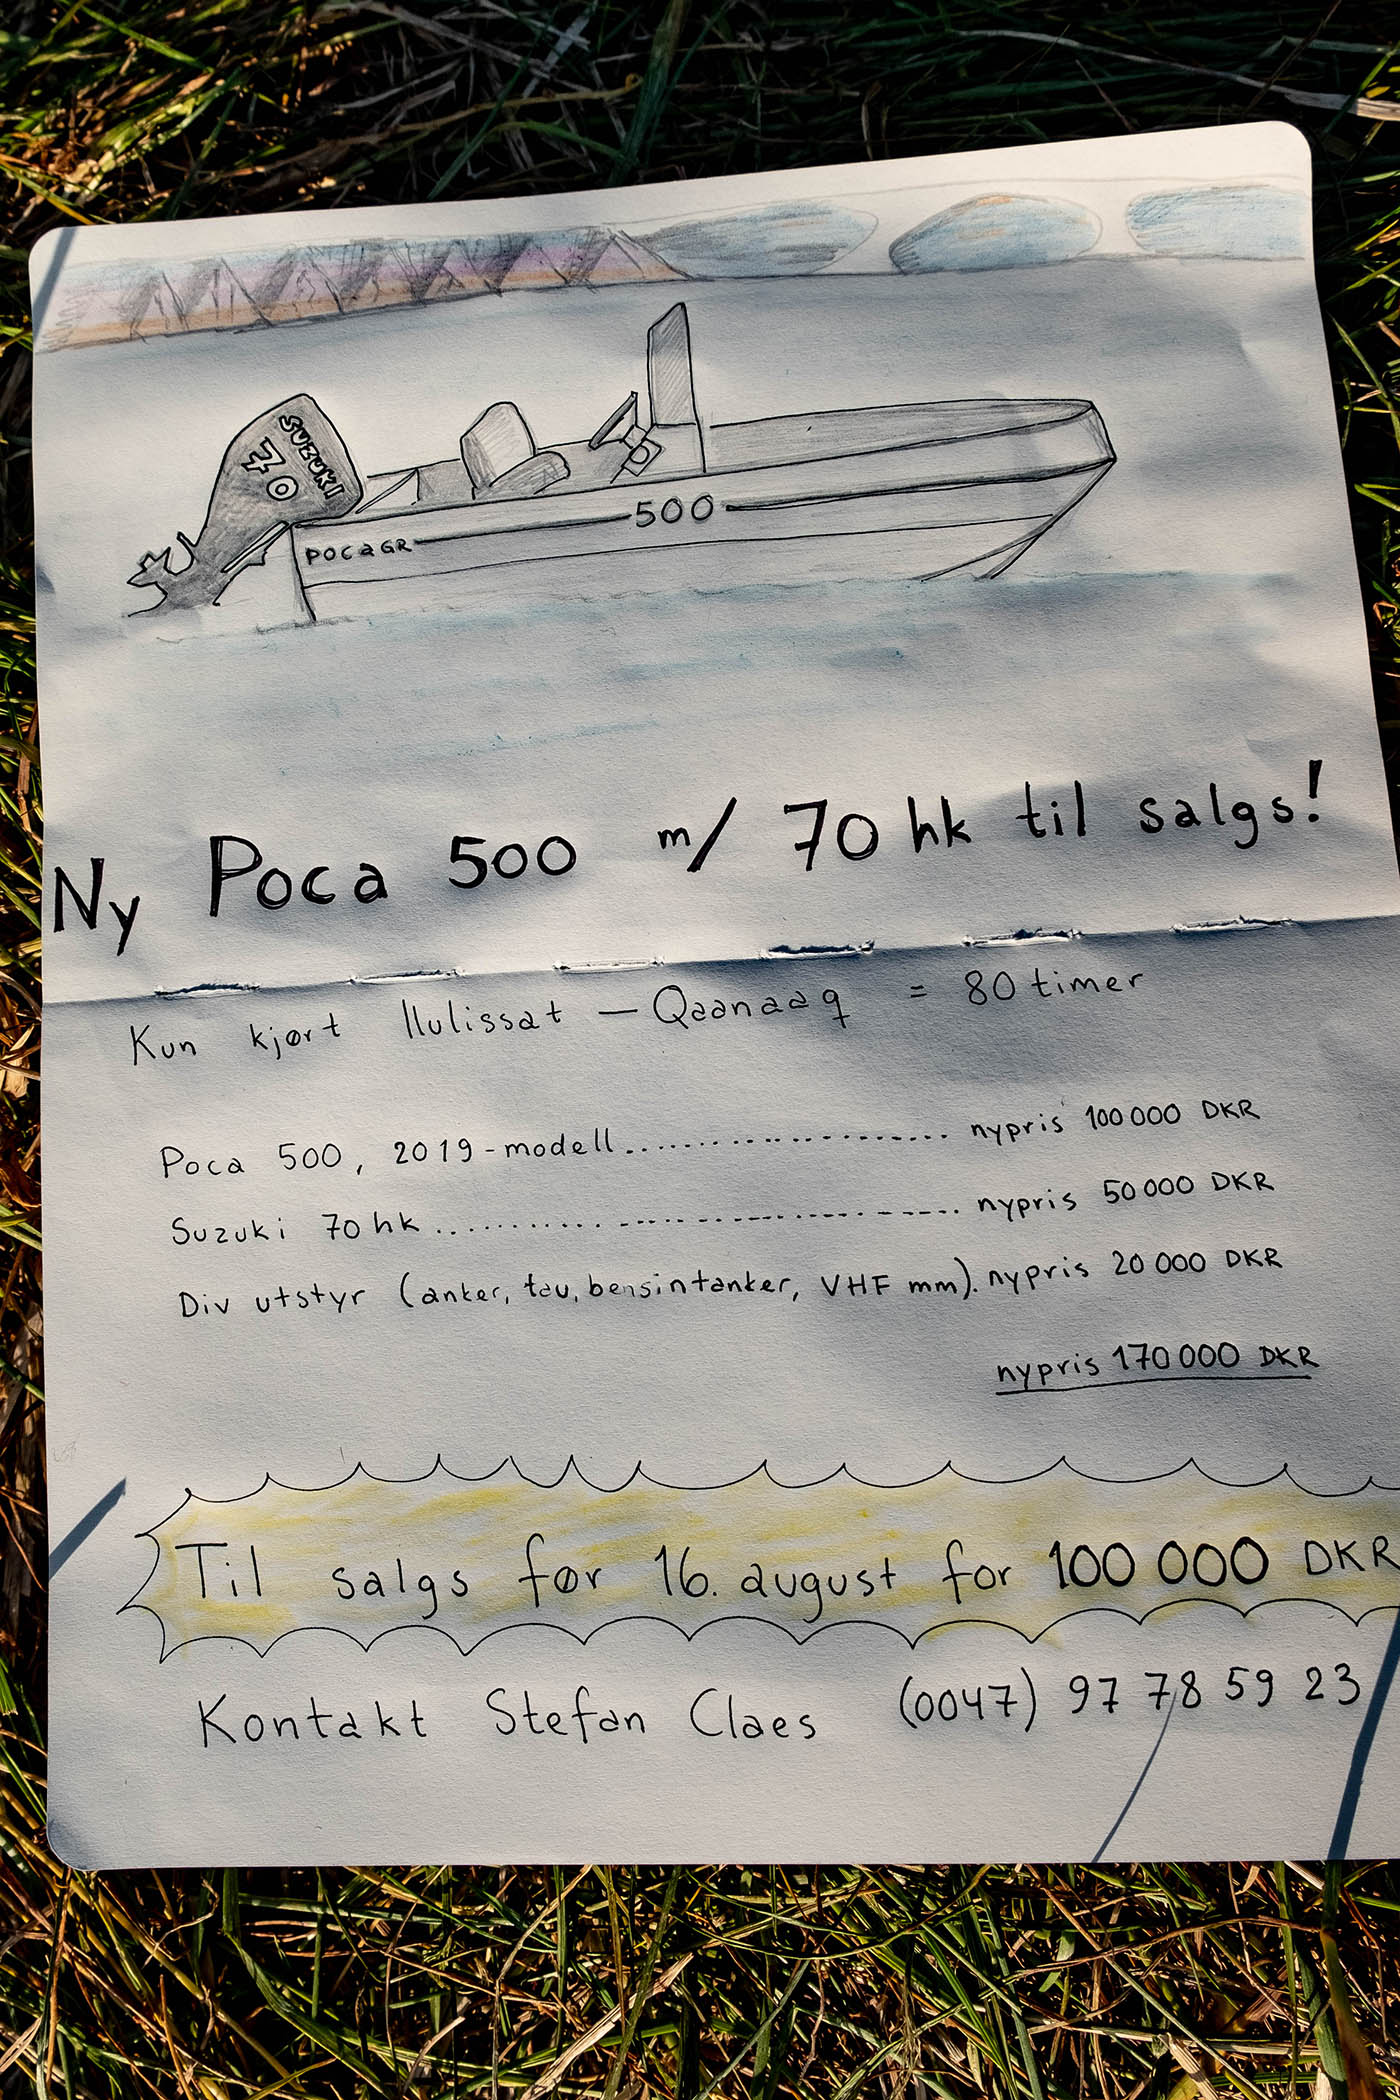 SUZUKI
70
500
POCAGR
Ny Poca 500 m/ 70 hk til salgs!
Kun kjørt Ilulissat - Qaanaaq = 80 timer
Poca 500, 2019-modell.............................. nypris 100 000 DKR
Suzuki 70 hk .............................. nypris 50 000 DKR
Div utstyr (anker, tau, bensintanker, VHF mm). nypris 20 000 DKR
nypris 170 000 DKR
Til salgs før 16. august for 100 000 DKR
Kontakt Stefan Claes (0047) 97 78 59 23